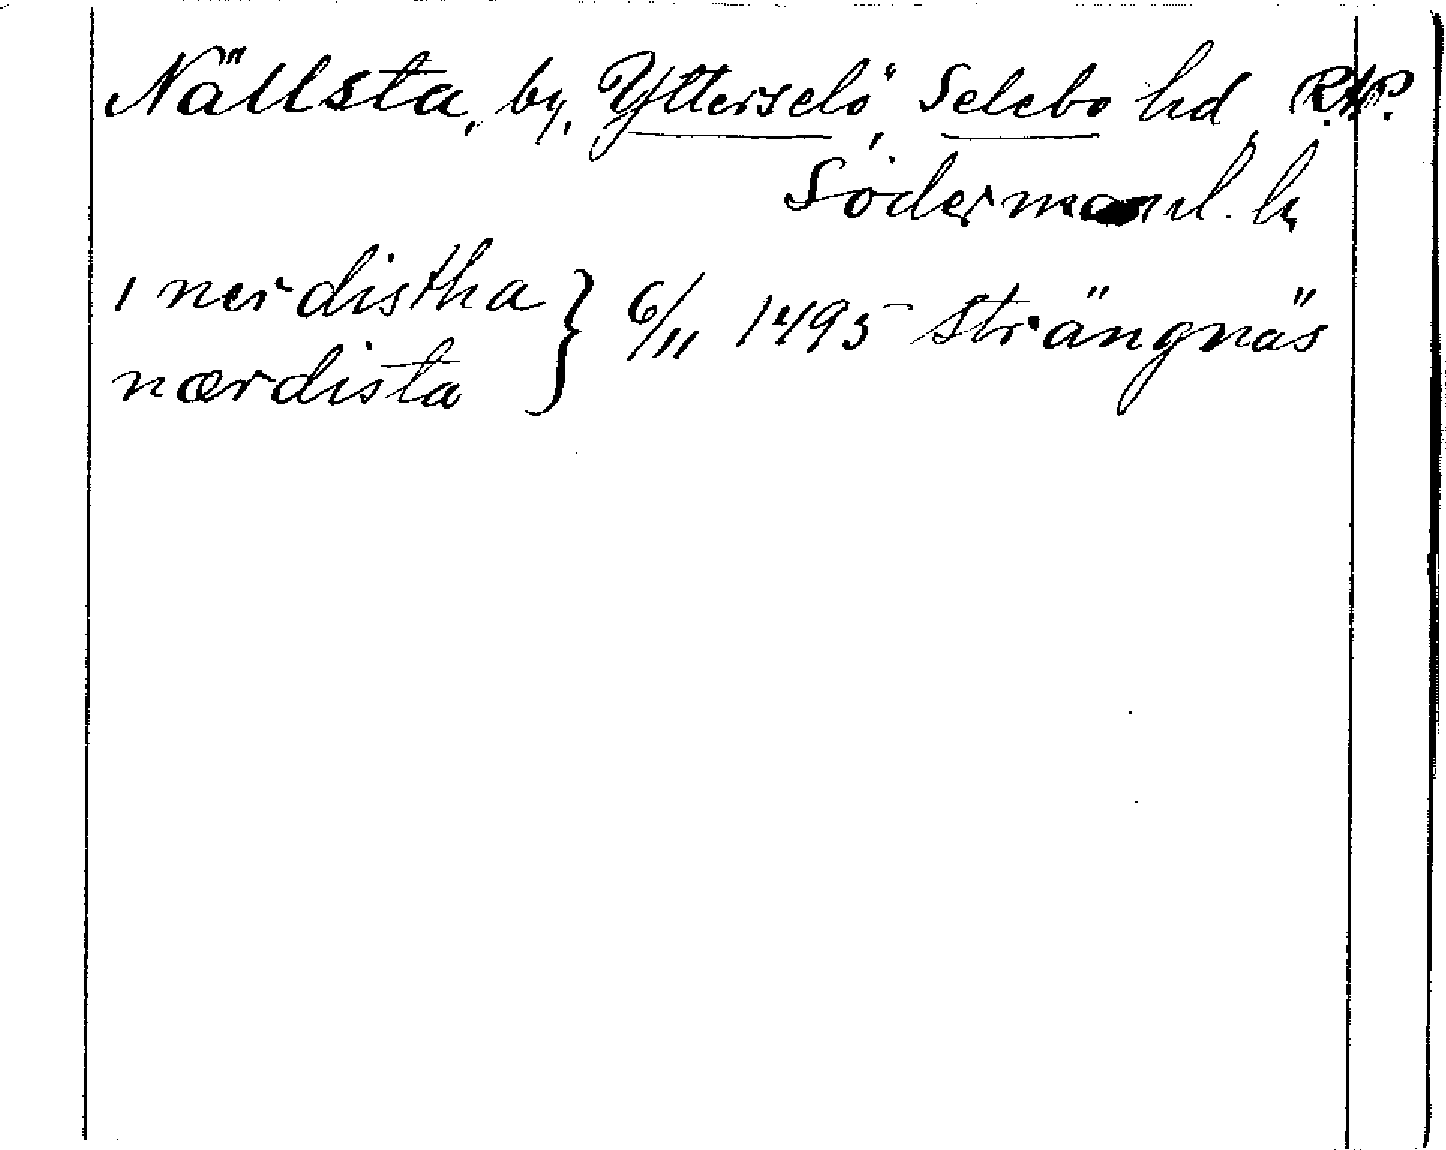 Nällsta, by, Ytterselö, Selebo hd, R.A.P.
Södermanl. l.
i nerdistha } 6/11 1495 Strängnäs
nærdista